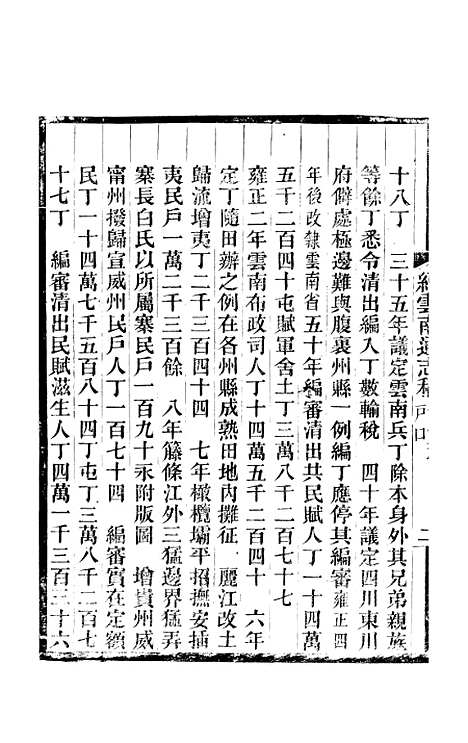 十八丁　三十五年議定雲南兵丁除本身外其兄弟親族
等餘丁悉令清出編入丁數輸稅　四十年議定四川東川
府僻處極邊難與腹裏州縣一例編丁應停其編審雍正四
年後改隸雲南省五十年編審清出共民賦人丁一十四萬
五千二百四十屯賦軍舍土丁三萬八千二百七十七
雍正二年雲南布政司人丁十四萬五千二百四十　六年
定丁隨田辦之例在各州縣成熟田地內攤征　麗江改土
歸流增夷丁二千三百四十四　七年橄欖壩平招撫安插
夷民戶一萬二千三百餘　八年籐條江外三猛邊界猛弄
寨長白氏以所屬寨民戶一百九十永附版圖　增貴州威
甯州撥歸宣威州民戶人丁一百七十四　編審實在定額
民丁一十四萬七千五百八十四丁屯丁三萬八千二百七
十七丁　編審清出民賦滋生人丁四萬一千三百三十六